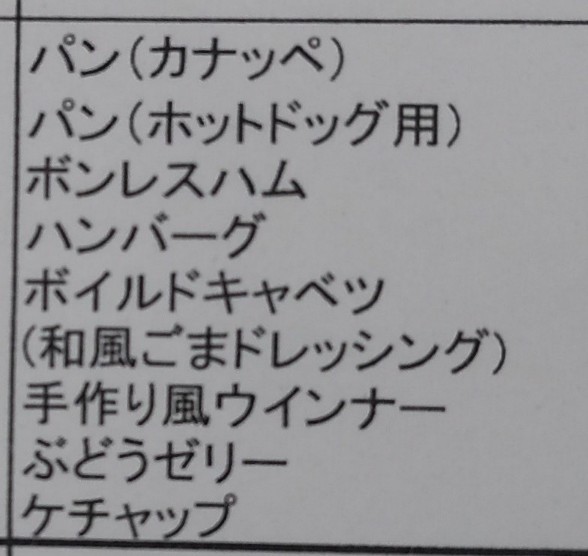 パン(カナッペ)
パン(ホットドッグ用)
ボンレスハム
ハンバーグ
ボイルドキャベツ
(和風ごまドレッシング)
手作り風ウインナー
ぶどうゼリー
ケチャップ